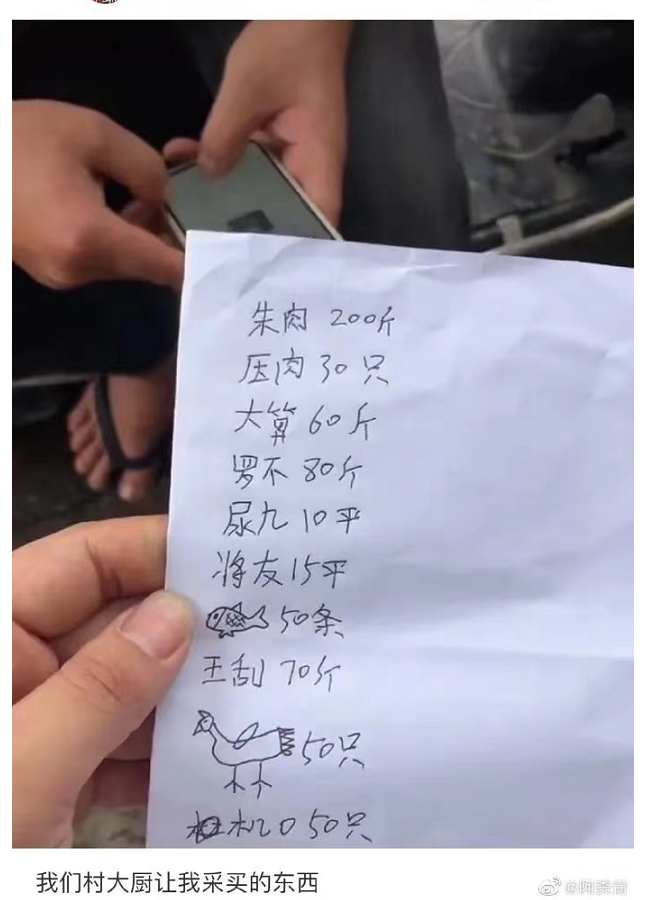 朱肉 200斤
压肉 30只
大算 60斤
罗不 80斤
尿九 10平
将友 15平
50条
王刮 70斤
50只
机口 50只
我们村大厨让我采买的东西
@阿粲酱